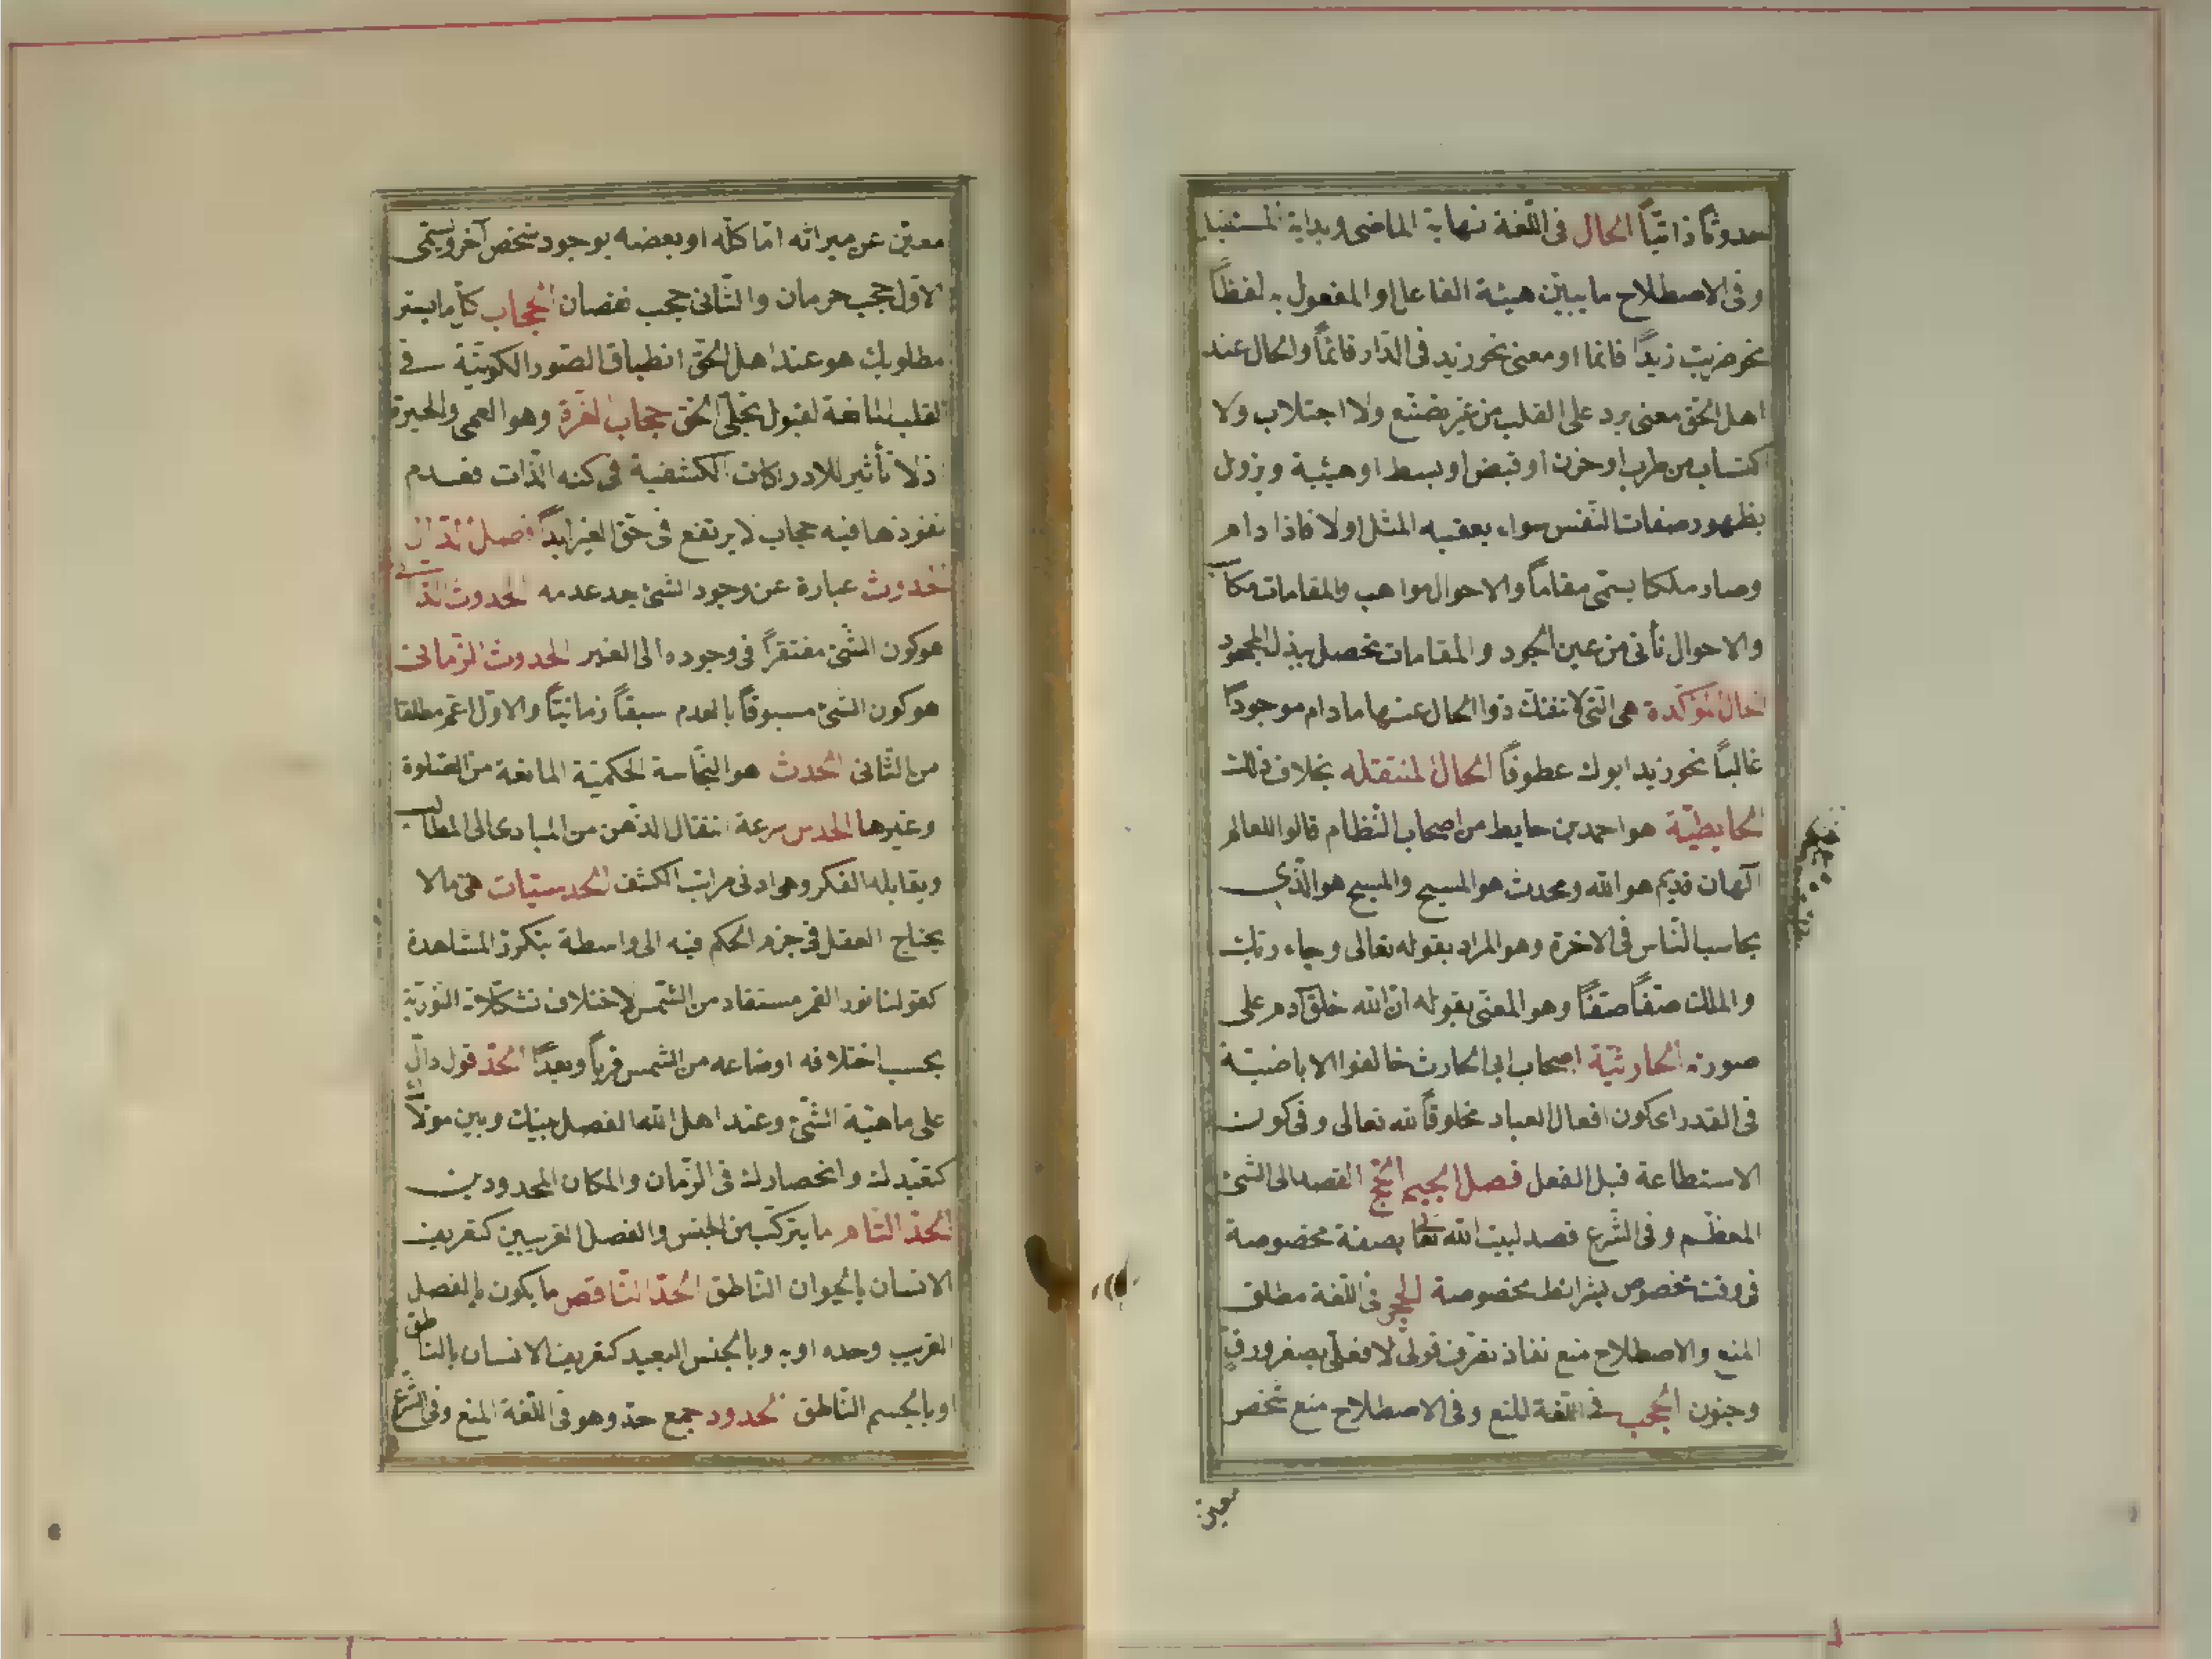 حدوثاً ذاتيّاً الحال فى اللّغة نهاية الماضى وبداية المستقبل
وفى الاصطلاح ما يبيّن هيئة الفاعل او المفعول به لفظاً
نحو ضربت زيداً قائما او معنى نحو زيد فى الدّار قائماً والحال عند
اهل الحقّ معنى يرد على القلب من غير تصنّع ولا اجتلاب ولا
اكتساب من طرب او حزن او قبض او بسط او هيئة ويزول
بظهور صفات النّفس سواء يعقبه المثل اولا فاذا دام
وصار ملكا يسمّى مقاماً والاحوال مواهب والمقامات مكاسب
والاحوال تأتى من عين الجود والمقامات تحصل ببذل المجهود
الحال المؤكّدة هى الّتى لا تنفك ذوا الحال عنها ما دام موجوداً
غالباً نحو زيد ابوك عطوفاً الحال المنتقله بخلاف ذلك
الحايطيّة هو احمد بن حايط من اصحاب النّظام قالوا للعالم
آلهان قديم هو الله ومحدث هو المسيح والمسيح هو الّذى
يحاسب النّاس فى الاخرة وهو المراد بقوله تعالى وجاء ربّك
والملك صفّاً صفّاً وهو المعنىّ بقوله انّ الله خلق آدم على
صورته الحارثيّة اصحاب ابى الحارث خالفوا الاباضيّة
فى القدر اى كون افعال العباد مخلوقاً لله تعالى وفى كون
الاستطاعة قبل الفعل فصل الجيم الحجّ القصد الى الشّئ
المعظّم وفى الشّرع قصد لبيت الله تعالى بصفة مخصوصة
فى وقت مخصوص بشرائط مخصوصة الحجر فى اللّغة مطلق
المنع والاصطلاح منع نفاذ تصّرف قولىّ لا فعلىّ بصغر ورقّ
وجنون الحجب فى اللّغة المنع وفى الاصطلاح منع شخص
معيّن
معيّن عن ميراثه امّا كلّه او بعضه بوجود شخص آخر ويسمّى
الاوّل حجب حرمان والثّانى حجب نقصان الحجاب كلّ ما يستر
مطلوبك هو عند اهل الحقّ انطباق الصّور الكونيّة فى
القلب المانعة لقبول تجلّى الحقّ حجاب العزّة وهو العمى والحيرة
اذ لا تأثير للادراكات الكشفية فى كنه الذّات فعدم
نفوذها فيه حجاب لا يرتفع فى حقّ الغير ابداً فصل الدّال
الحدوث عبارة عن وجود الشّئ بعد عدمه الحدوث الذّاتى
هو كون الشّئ مفتقراً فى وجوده الى الغير الحدوث الزّمانى
هو كون الشّئ مسبوقاً بالعدم سبقاً زمانيّاً والاوّل اعمّ مطلقا
من الثّانى الحدث هو النّجاسة الحكميّة المانعة من الصّلوة
وغيرها الحدس سرعة انتقال الذّهن من المبادى الى المطالب
ويقابله الفكر وهو ادنى مراتب الكشف الحدسيّات هى ما لا
يحتاج العقل فى جزم الحكم فيه الى واسطة بتكرّر المشاهدة
كقولنا نور القمر مستفاد من الشّمس لاختلاف تشكّلاته النّوريّة
بحسب اختلافه اوضاعه من الشّمس قرباً وبعداً الحدّ قول دالّ
على ماهيّة الشّئ وعند اهل الله الفصل بينك وبين مولاك
كتقيّدك وانحصارك فى الزّمان والمكان المحدودين
الحدّ التّام ما يتركّب من الجنس والفصل القريبين كتعريف
الانسان بالحيوان النّاطق الحدّ النّاقص ما يكون بالفصل
القريب وحده او به وبالجنس البعيد كتعريف الانسان بالنّاطق
او بالجسم النّاطق الحدود جمع حدّ وهو فى اللّغة المنع وفى الشّرع